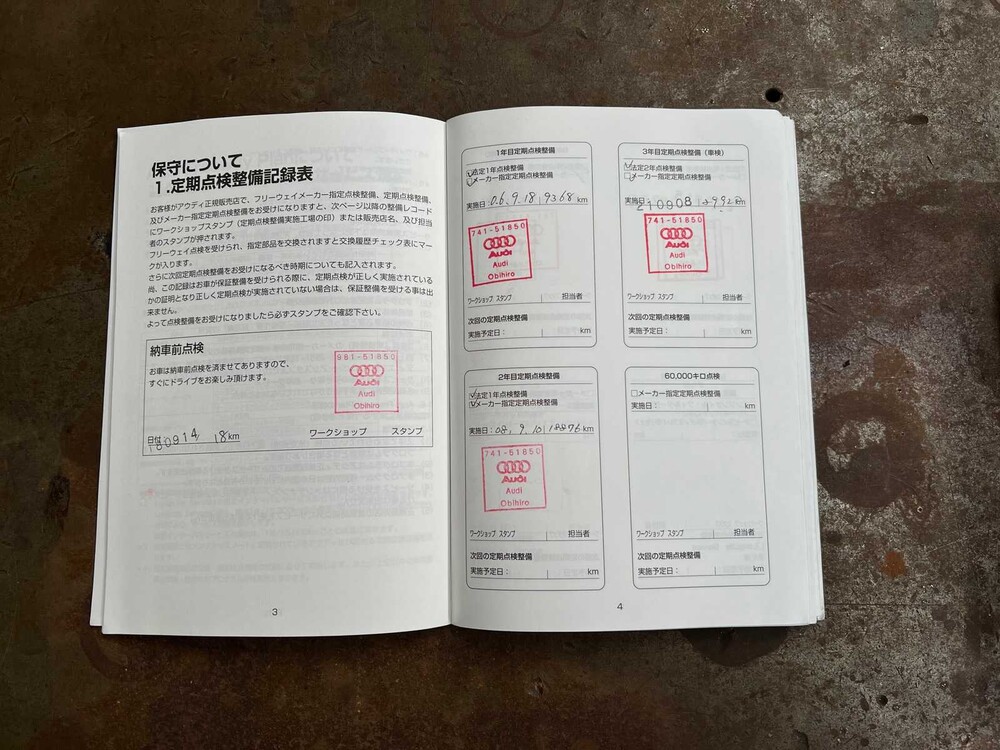 保守について
1.定期点検整備記録表
お客様がアウディ正規販売店で、フリーウェイメーカー指定点検整備、定期点検整備、
及びメーカー指定定期点検整備をお受けになりますと、次ページ以降の整備レコード
にワークショップスタンプ（定期点検整備実施工場の印）または販売店名、及び担当
者のスタンプが押されます。
フリーウェイ点検を受けられ、指定部品を交換されますと交換履歴チェック表にマー
クが入ります。
さらに次回定期点検整備をお受けになるべき時期についても記入されます。
尚、この記録はお車が保証整備を受けられる際に、定期点検が正しく実施されている
かの証明となり正しく定期点検が実施されていない場合は、保証整備を受ける事は出
来ません。
よって点検整備をお受けになりましたら必ずスタンプをご確認下さい。
納車前点検
お車は納車前点検を済ませてありますので、
すぐにドライブをお楽しみ頂けます。
981-51850
Audi
Audi
Obihiro
日付 180914 18km
ワークショップ スタンプ
3
1年目定期点検整備
法定1年点検整備
メーカー指定定期点検整備
実施日: 9368 km
741-51850
Audi
Audi
Obihiro
ワークショップ スタンプ 担当者
次回の定期点検整備
実施予定日: km
2年目定期点検整備
法定1年点検整備
メーカー指定定期点検整備
実施日: km
741-51850
Audi
Audi
Obihiro
ワークショップ スタンプ 担当者
次回の定期点検整備
実施予定日: km
3年目定期点検整備（車検）
法定2年点検整備
メーカー指定定期点検整備
実施日: 210908 km
741-51850
Audi
Audi
Obihiro
ワークショップ スタンプ 担当者
次回の定期点検整備
実施予定日: km
60,000キロ点検
メーカー指定定期点検整備
実施日: km
ワークショップ スタンプ 担当者
次回の定期点検整備
実施予定日: km
4